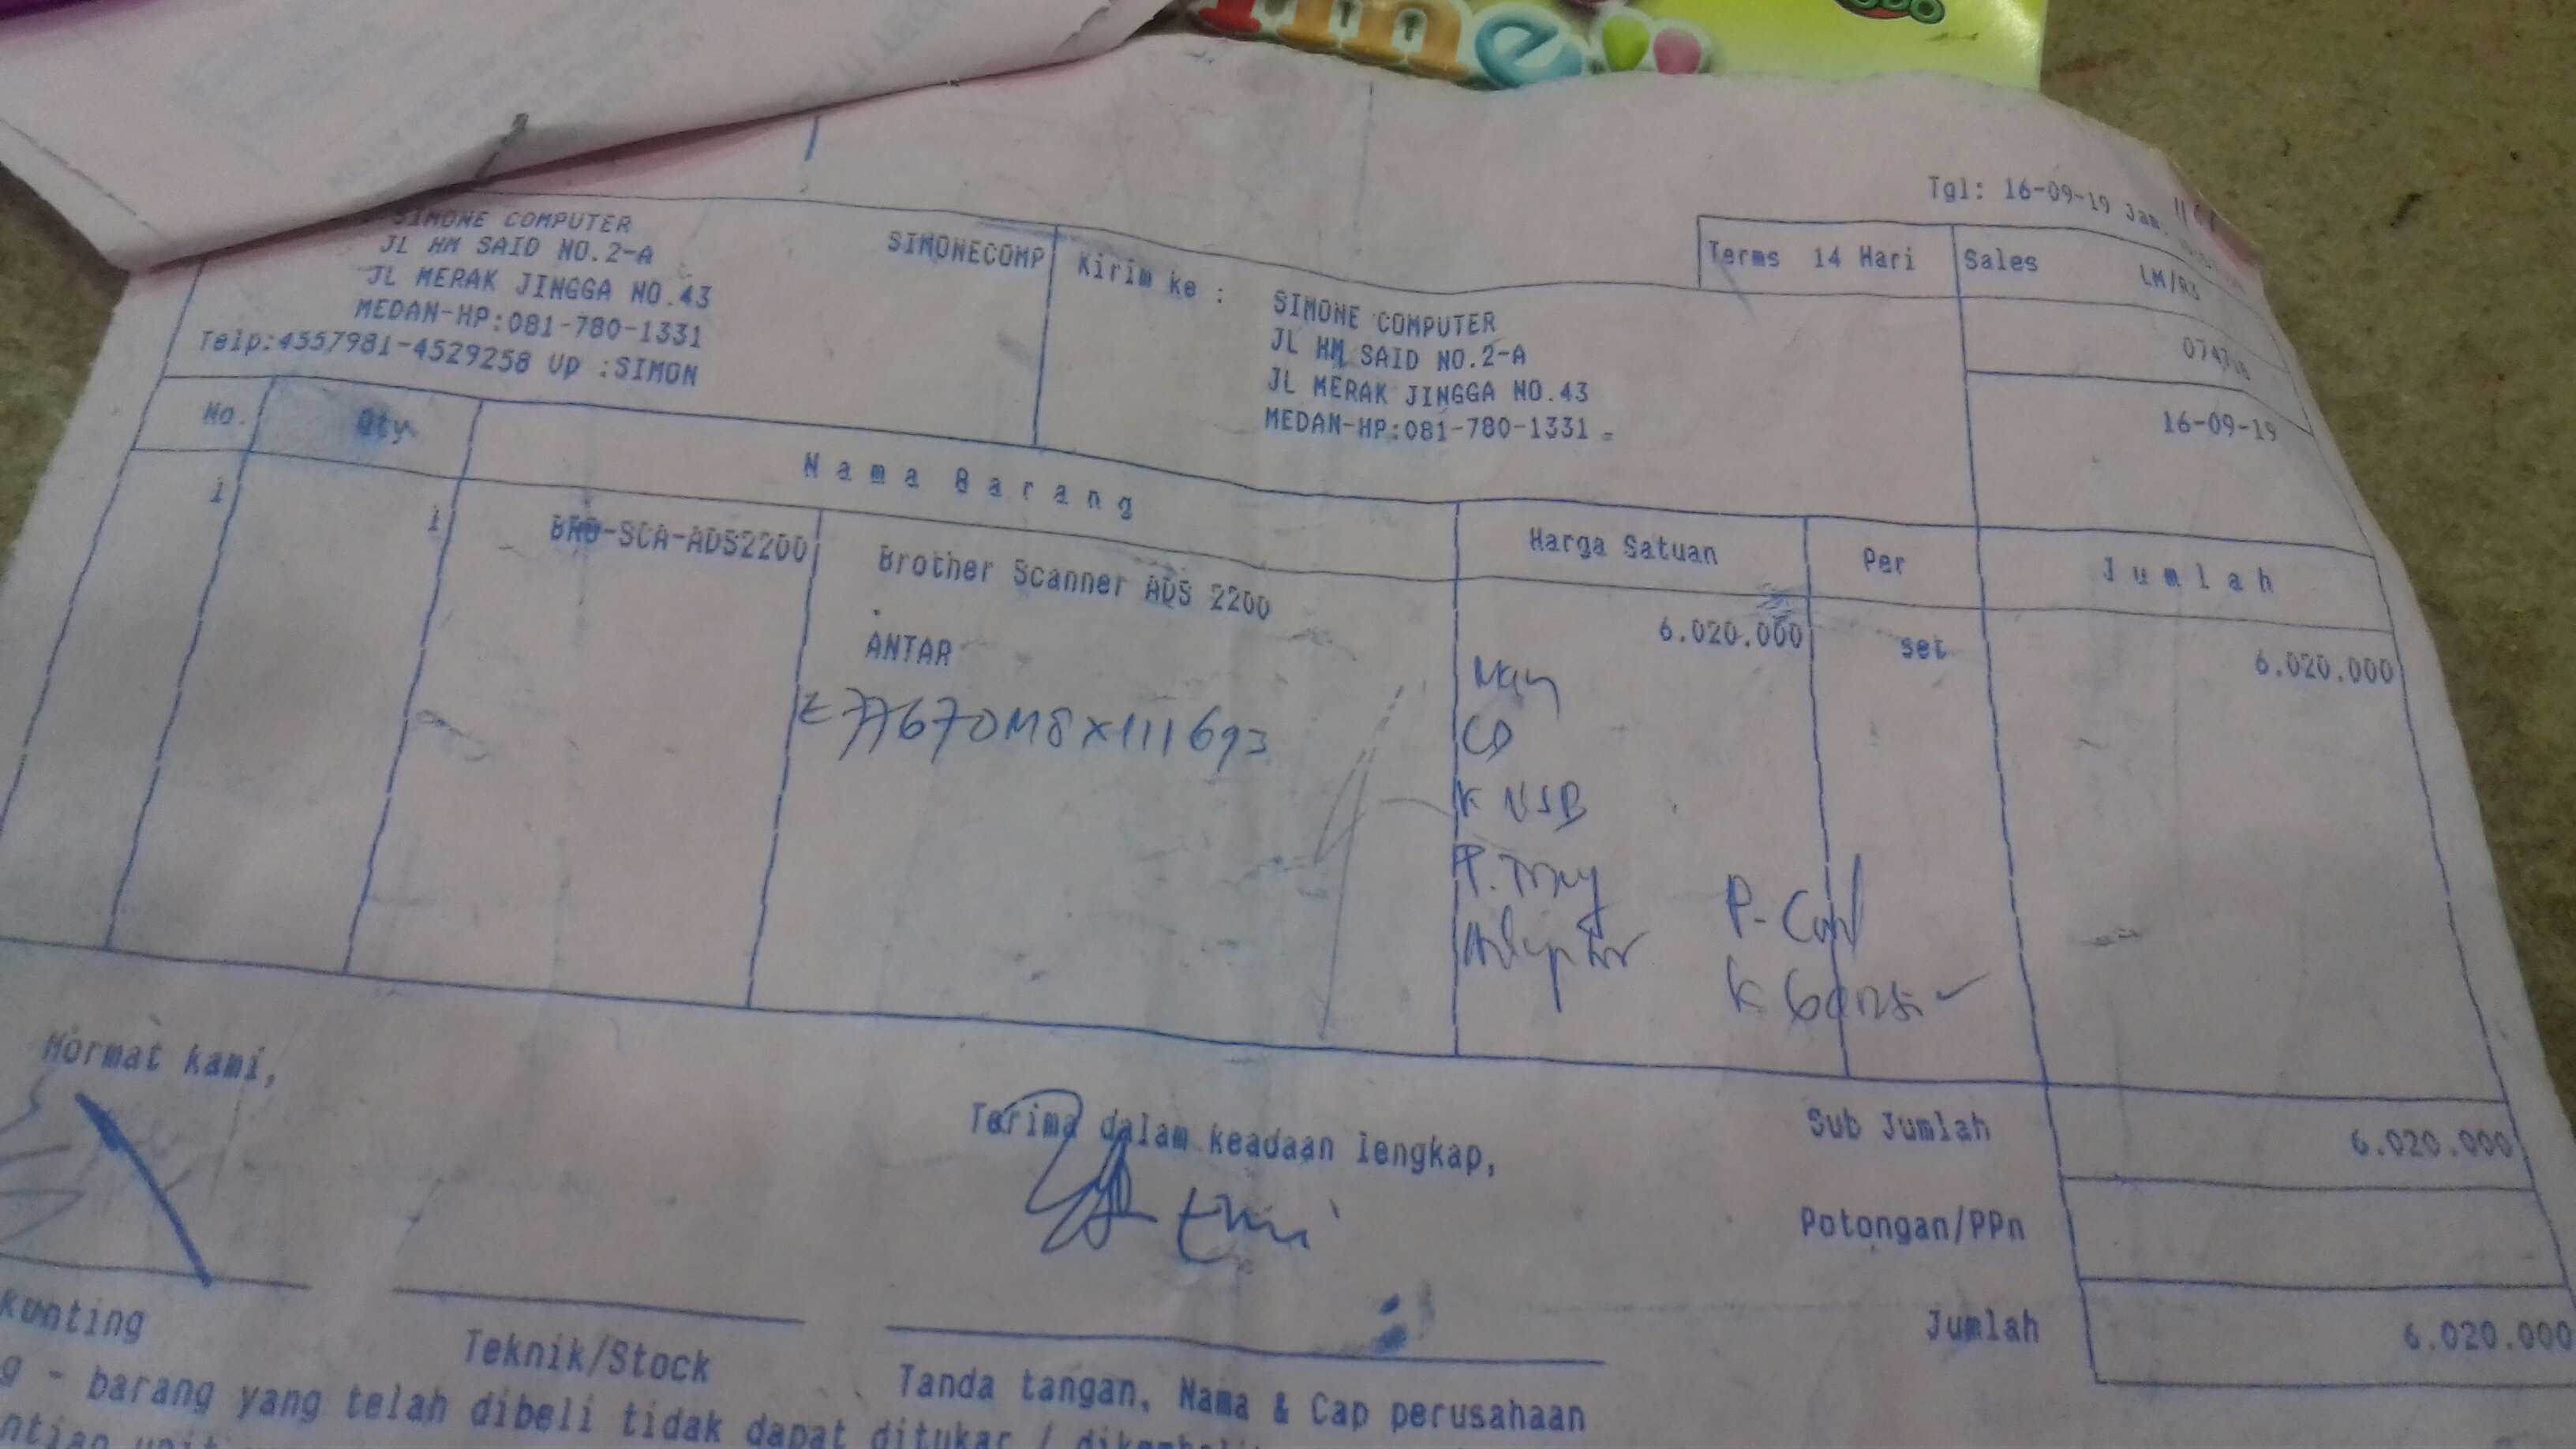 me
Tgl: 16-09-19 Jam.
SIMONE COMPUTER
JL HM SAID NO.2-A
JL MERAK JINGGA NO.43
MEDAN-HP:081-780-1331
Telp:4557981-4529258 Up :SIMON
SIMONECOMP
Kirim ke :
SIMONE COMPUTER
JL HM SAID NO.2-A
JL MERAK JINGGA NO.43
MEDAN-HP:081-780-1331
Terms 14 Hari
Sales
16-09-19
No. Qty Nama Barang Harga Satuan Per Jumlah
1 1 BRO-SCA-ADS2200 Brother Scanner ADS 2200 6.020.000 set 6.020.000
.
ANTAR
E77670M8X111693
CD
K USB
P. Tray
Adaptor
P. Card
K Garansi
Hormat kami,
Terima dalam keadaan lengkap,
Sub Jumlah 6.020.000
Potongan/PPn
Jumlah 6.020.000
kunting
Teknik/Stock
Tanda tangan, Nama & Cap perusahaan
g - barang yang telah dibeli tidak dapat ditukar /